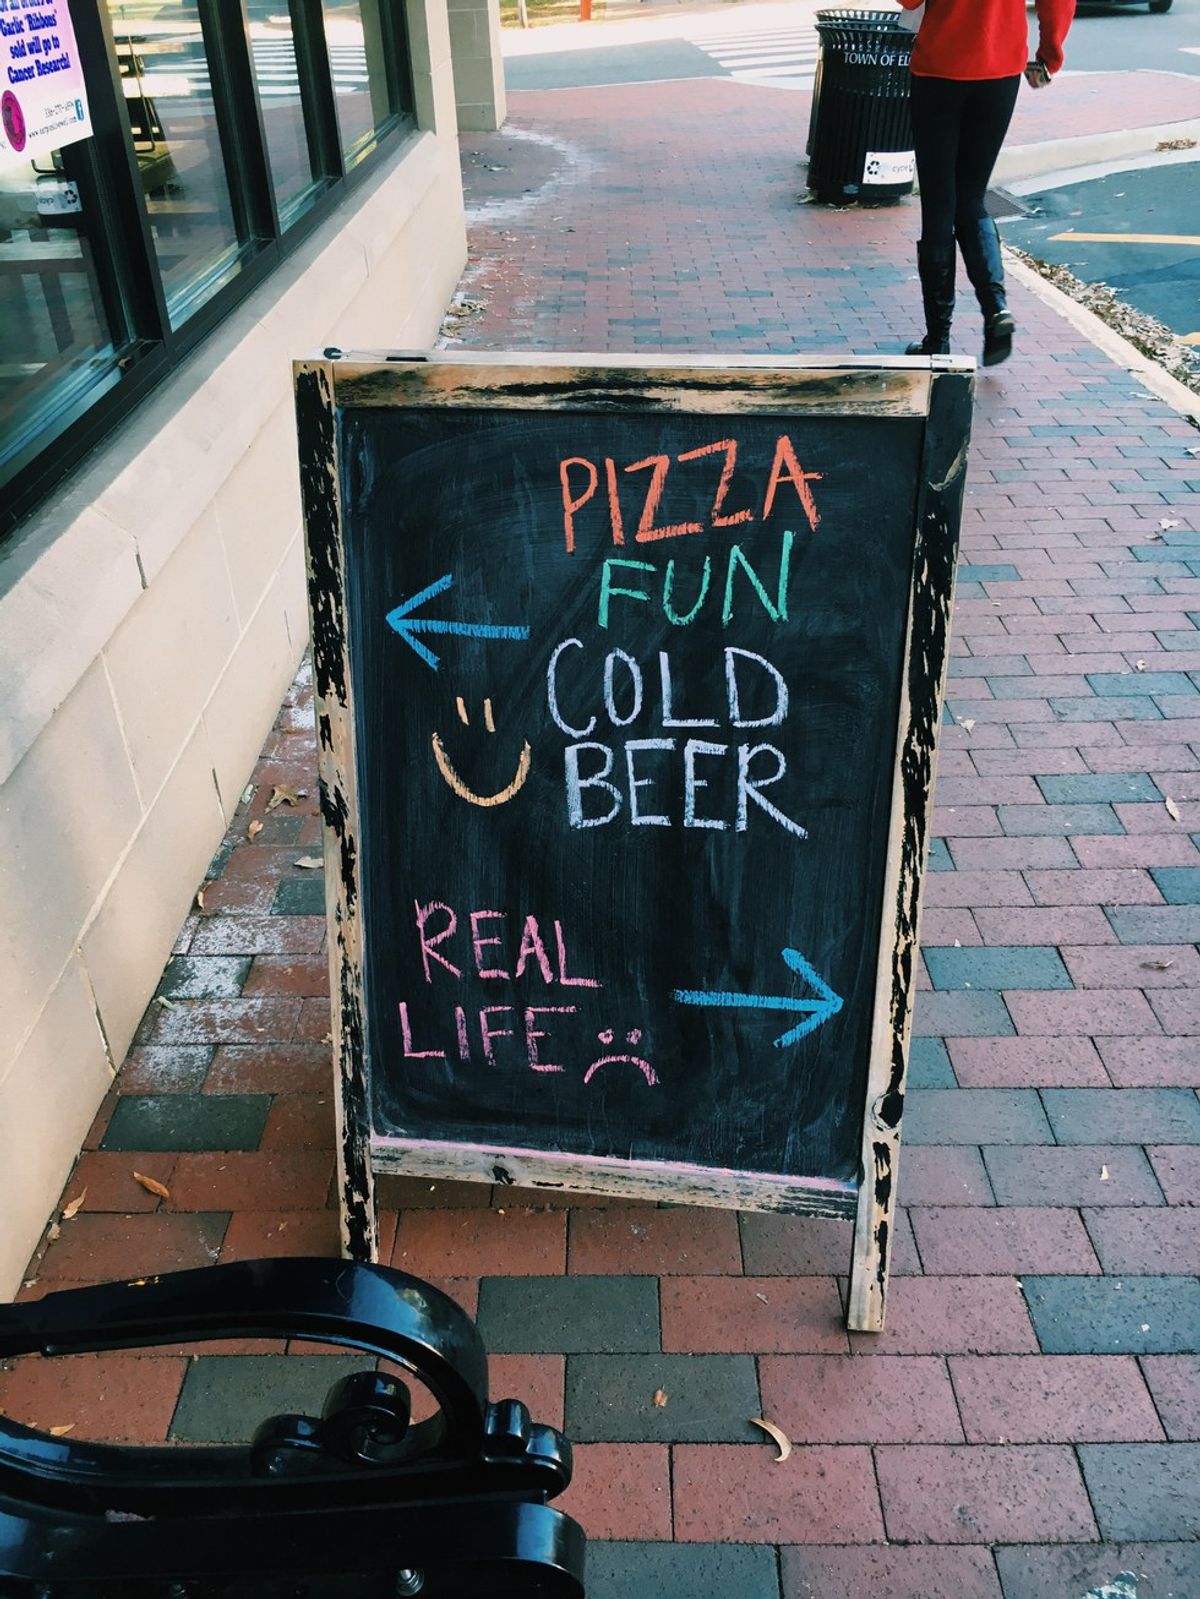 "Garlic "Ribbons"
sold will go to
Cancer Research!
TOWN OF EL
PIZZA
FUN
COLD
BEER
REAL
LIFE